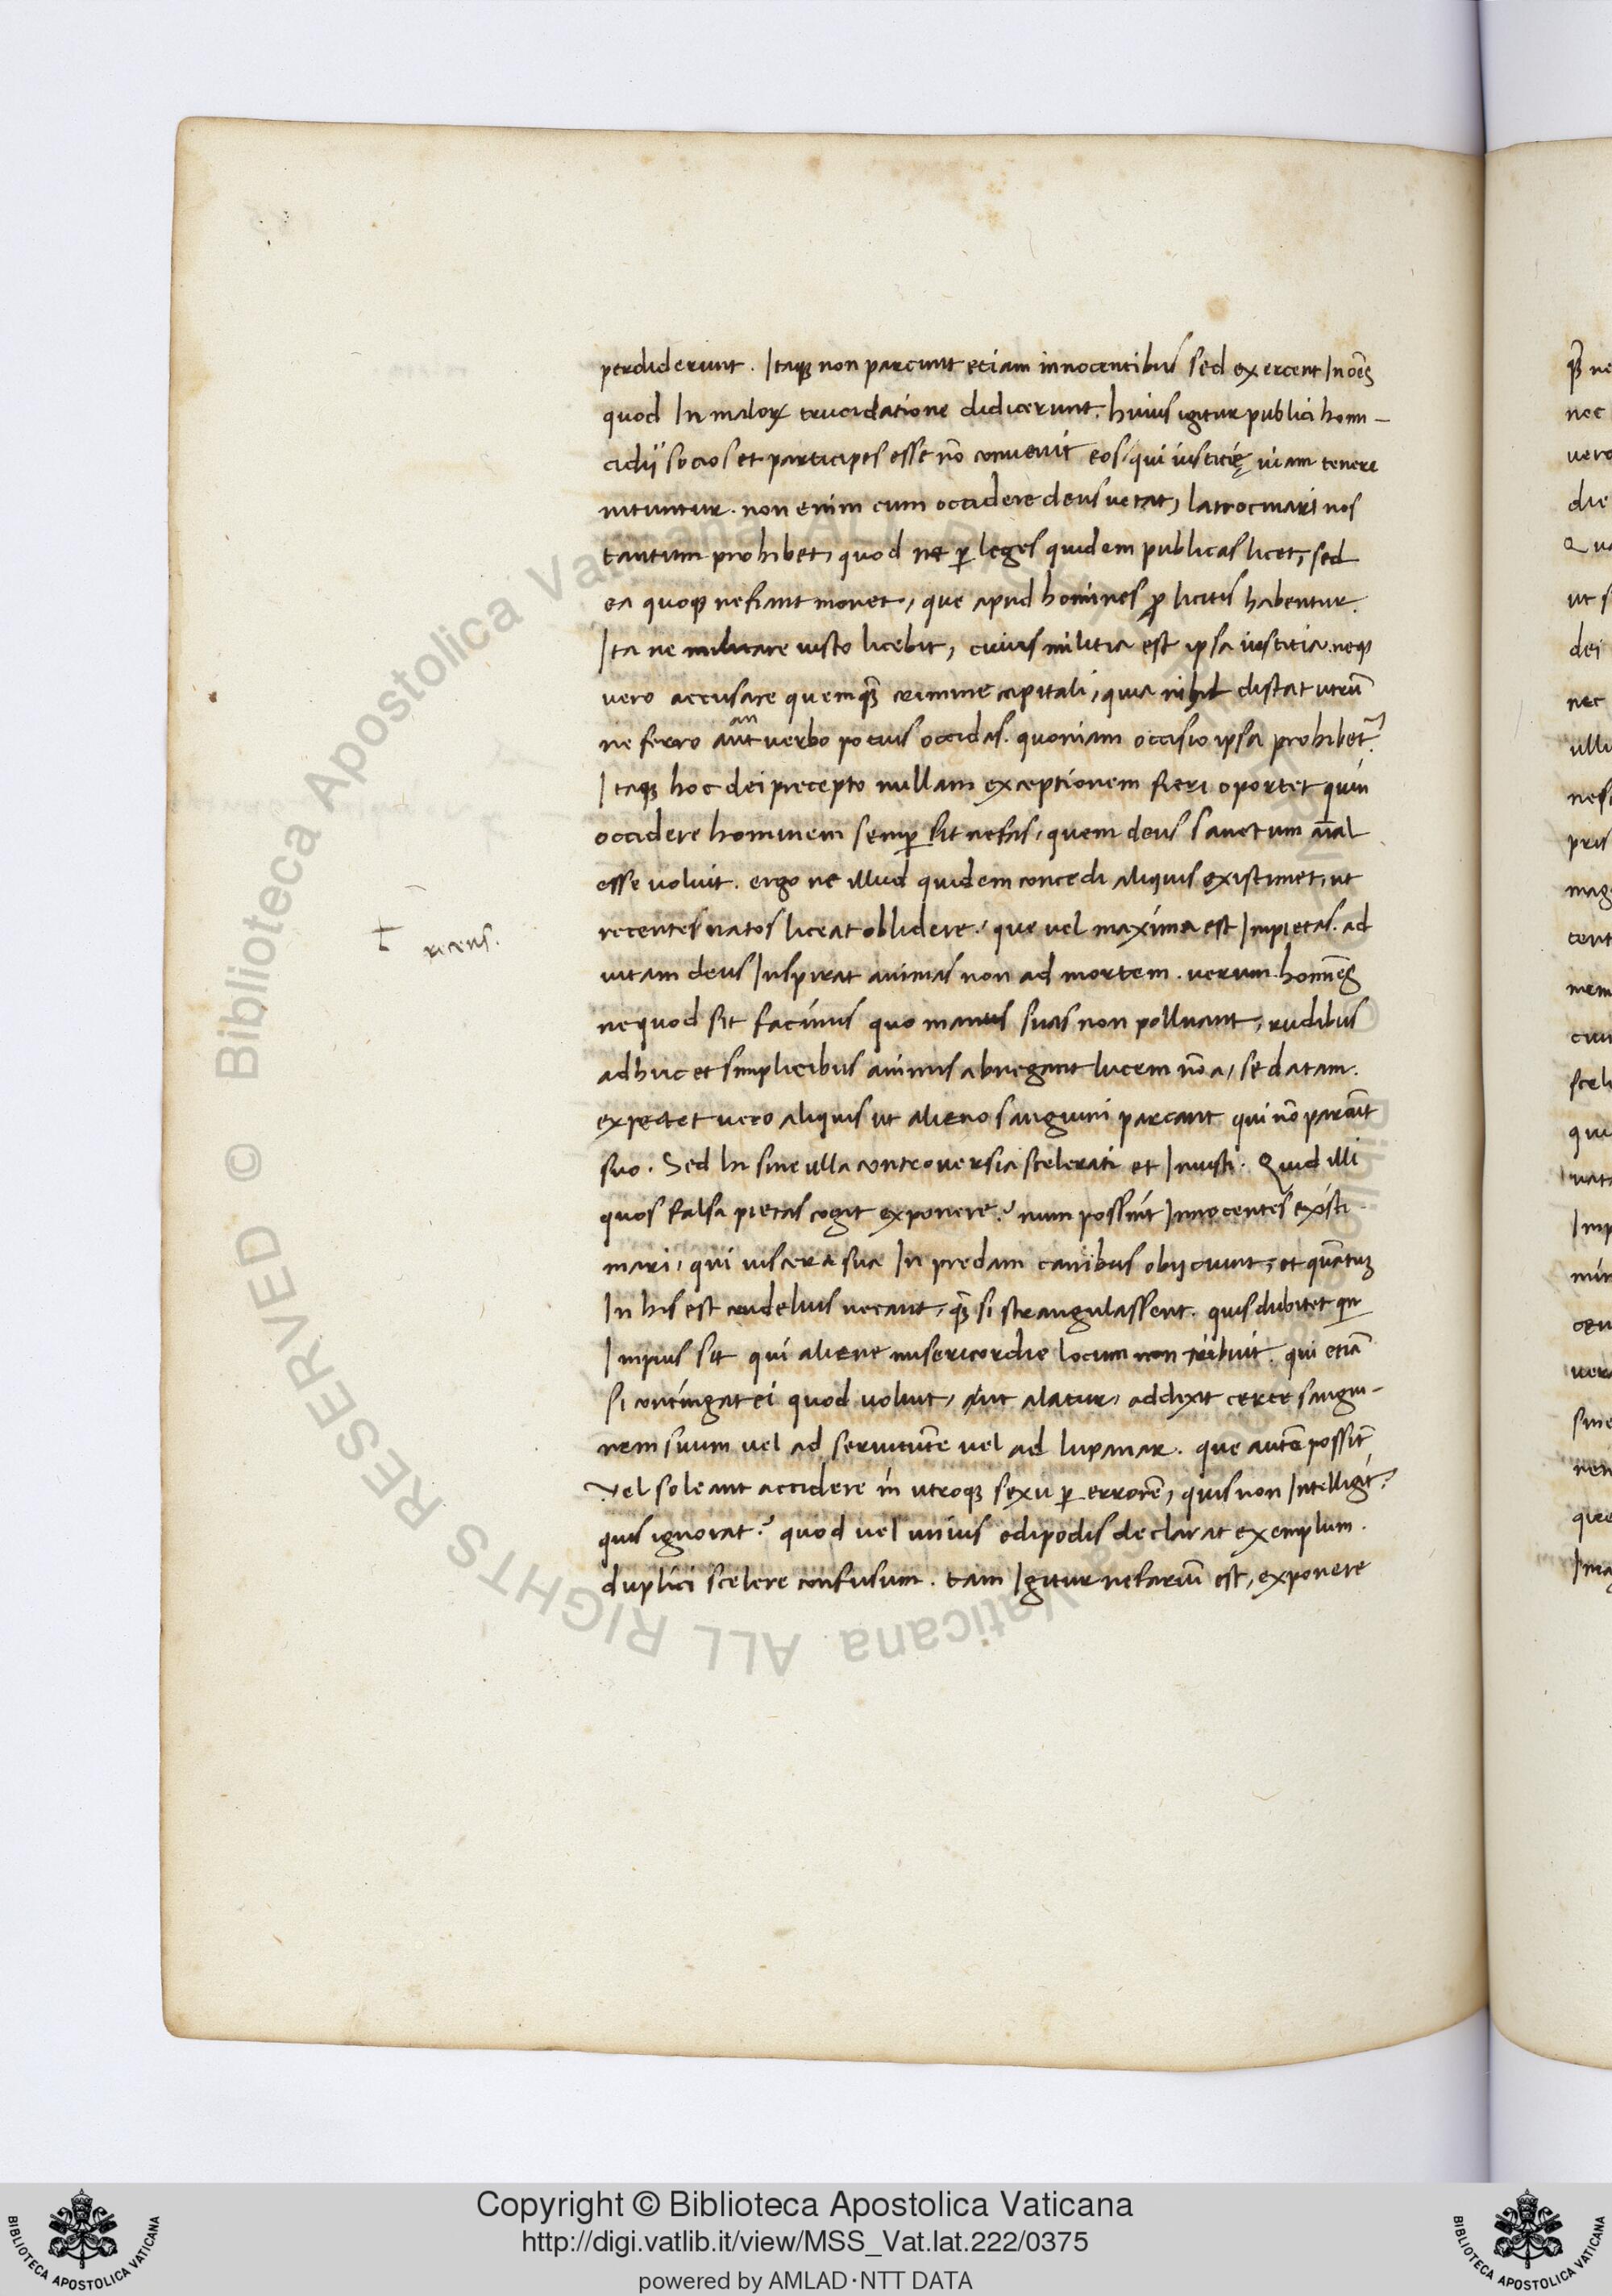 perdiderunt . Itaq; non parcunt etiam innocentibus sed exercent In oēs
quod In maloꝝ trucidatione didicerunt. huius igitur publici homi-
cidij socios et participes esse nō conuenit eos/ qui iusticię uiam tenere
nituntur . non enim cum occidere deus uetat, latrocinari nos
tantum prohibet, quod ne ꝑ leges quidem publicas licet, sed
ea quoq; ne fiant monet, que apud homines ꝓ licitis habentur.
Ita ne militare iusto licebit, cuius militia est ipsa iustitia. neq;
vero accusare quemq̄ crimine capitali, quia nihil distat utrū
an
ne ferro aut verbo potius occidas. quoniam occisio ipsa prohibet᷑.
Itaq; hoc dei precepto nullam exceptionem fieri oportet quin
occidere hominem semꝑ sit nefas, quem deus sanctum aīal
esse uoluit . ergo ne illud quidem concedi aliquis existimet, ut
recentes natos liceat oblidere, que vel maxima est Impietas. ad
uitam deus Inspirat animas non ad mortem . verum homīes
ne quod sit facinus quo manus suas non polluant, rudibus
adhuc et simplicibus animis abnegant lucem nō a, se datam.
expectet uero aliquis ut alieno sanguini parcant qui nō parcūt
suo . Sed hi sine ulla controuersia scelerati et Iniusti . Quid illi
quos falsa pietas cogit exponere? num possunt Innocentes existi-
mari, qui uiscera sua In predam canibus obijciunt, et quātuꝫ
In his est crudelius necant, q̄ si strangulassent . quis dubitet qn
Impius sit qui aliene misericordie locum non tribuit . qui etiā
si contingat ei quod voluit, ut alatur, addixit certe sangui-
nem suum vel ad seruitutē vel ad lupanar . que autē possīt
vel soleant accidere in utroq; sexu ꝑ errorē, quis non Intelligit?
quis ignorat? quod vel unius edipodis declarat exemplum .
duplici scelere confusum . tam Igitur nefariū est, exponere
† recens.
Copyright © Biblioteca Apostolica Vaticana
http://digi.vatlib.it/view/MSS_Vat.lat.222/0375
powered by AMLAD·NTT DATA
© Biblioteca Apostolica Vaticana ALL RIGHTS RESERVED
BIBLIOTECA APOSTOLICA VATICANA
BIBLIOTECA APOSTOLICA VATICANA